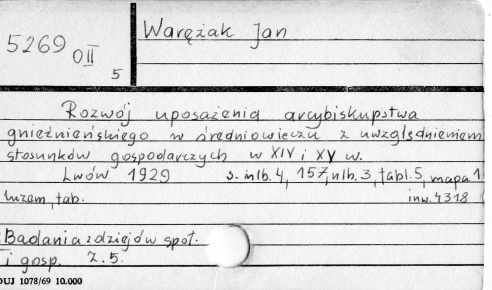 5269
OII
5
Warężak Jan
Rozwój uposażenia arcybiskupstwa
gnieźnieńskiego w średniowieczu z uwzględnieniem
stosunków gospodarczych w XIV i XV w.
Lwów 1929 s. nlb. 4, 157, nlb. 3, tabl. 5, mapa 1
inw. 4318
Badania z dziejów społ.
i gosp. Z. 5.
DUJ 1078/69 10.000